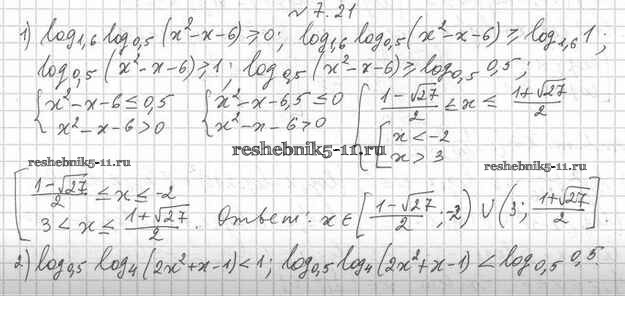 № 7.21
1) log₁,₆ log₀,₅ (x²-x-6) ⩾ 0; log₁,₆ log₀,₅ (x²-x-6) ⩾ log₁,₆ 1;
log₀,₅ (x²-x-6) ⩾ 1; log₀,₅ (x²-x-6) ⩾ log₀,₅ 0,5;
{ x²-x-6 ≤ 0,5 { x²-x-6,5 ≤ 0 { (1-√27)/2 ≤ x ≤ (1+√27)/2
x²-x-6 > 0 x²-x-6 > 0 [ x < -2
x > 3
reshebnik5-11.ru
reshebnik5-11.ru
reshebnik5-11.ru
[ (1-√27)/2 ≤ x ≤ -2
3 < x ≤ (1+√27)/2. Ответ: x ∈ [(1-√27)/2; -2) ∪ (3; (1+√27)/2].
2) log₀,₅ log₄ (2x²+x-1) < 1; log₀,₅ log₄ (2x²+x-1) < log₀,₅ 0,5.